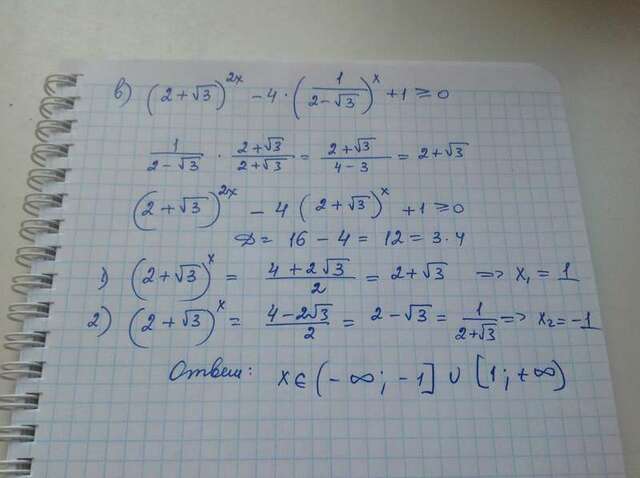 в) (2+√3)^2x - 4 · (1/(2-√3))^x + 1 ≥ 0
1/(2-√3) · (2+√3)/(2+√3) = (2+√3)/(4-3) = 2+√3
(2+√3)^2x - 4 (2+√3)^x + 1 ≥ 0
D = 16 - 4 = 12 = 3·4
1) (2+√3)^x = (4+2√3)/2 = 2+√3 => x₁ = 1
2) (2+√3)^x = (4-2√3)/2 = 2-√3 = 1/(2+√3) => x₂ = -1
Ответ: x∈(-∞; -1] ∪ [1; +∞)